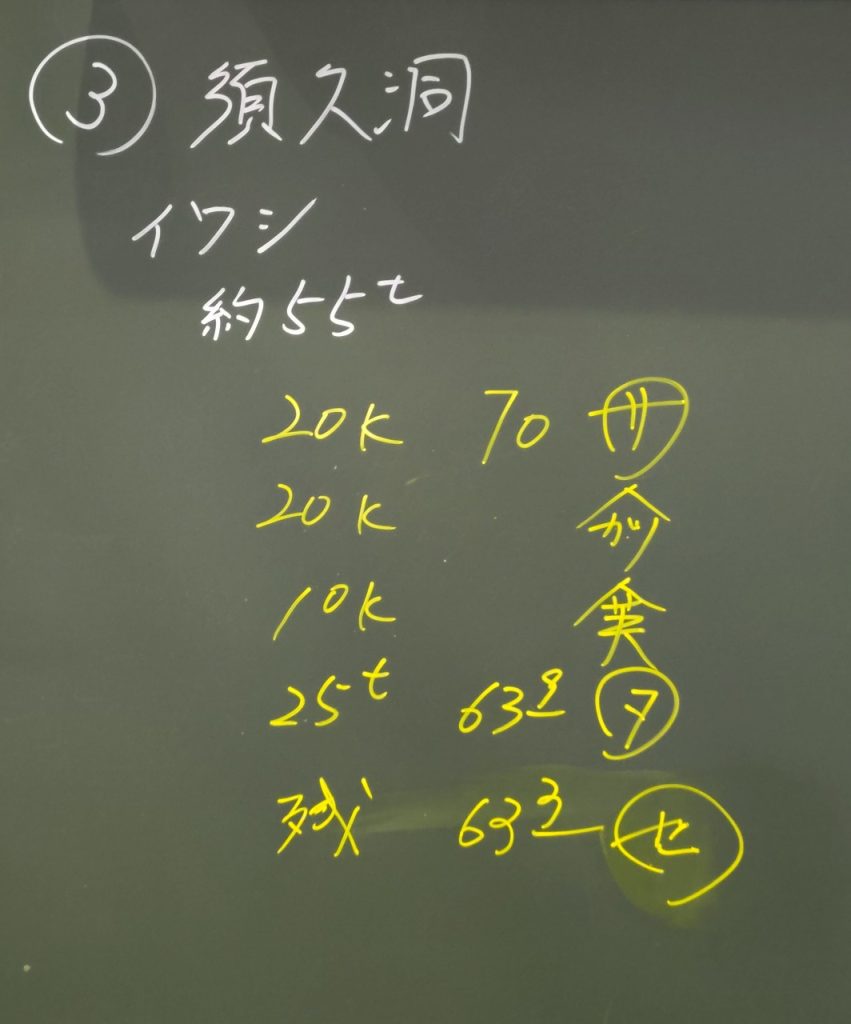 ③ 須久洞
イワシ
約55t
20K 70 サ
20K ガツ
10K
25t 63.9 タ
残 63.3 セ